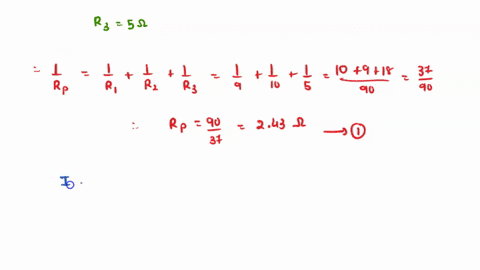 R3 = 5Ω
= 1/Rp = 1/R1 + 1/R2 + 1/R3 = 1/9 + 1/10 + 1/5 = 10+9+18/90 = 37/90
∴ Rp = 90/37 = 2.43 Ω → ①